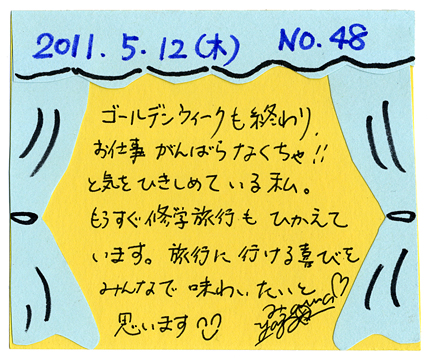 2011.5.12(木) NO.48
ゴールデンウィークも終わり、
お仕事がんばらなくちゃ!!
と気をひきしめている私。
もうすぐ修学旅行もひかえて
います。旅行に行ける喜びを
みんなで味わいたいと
思います